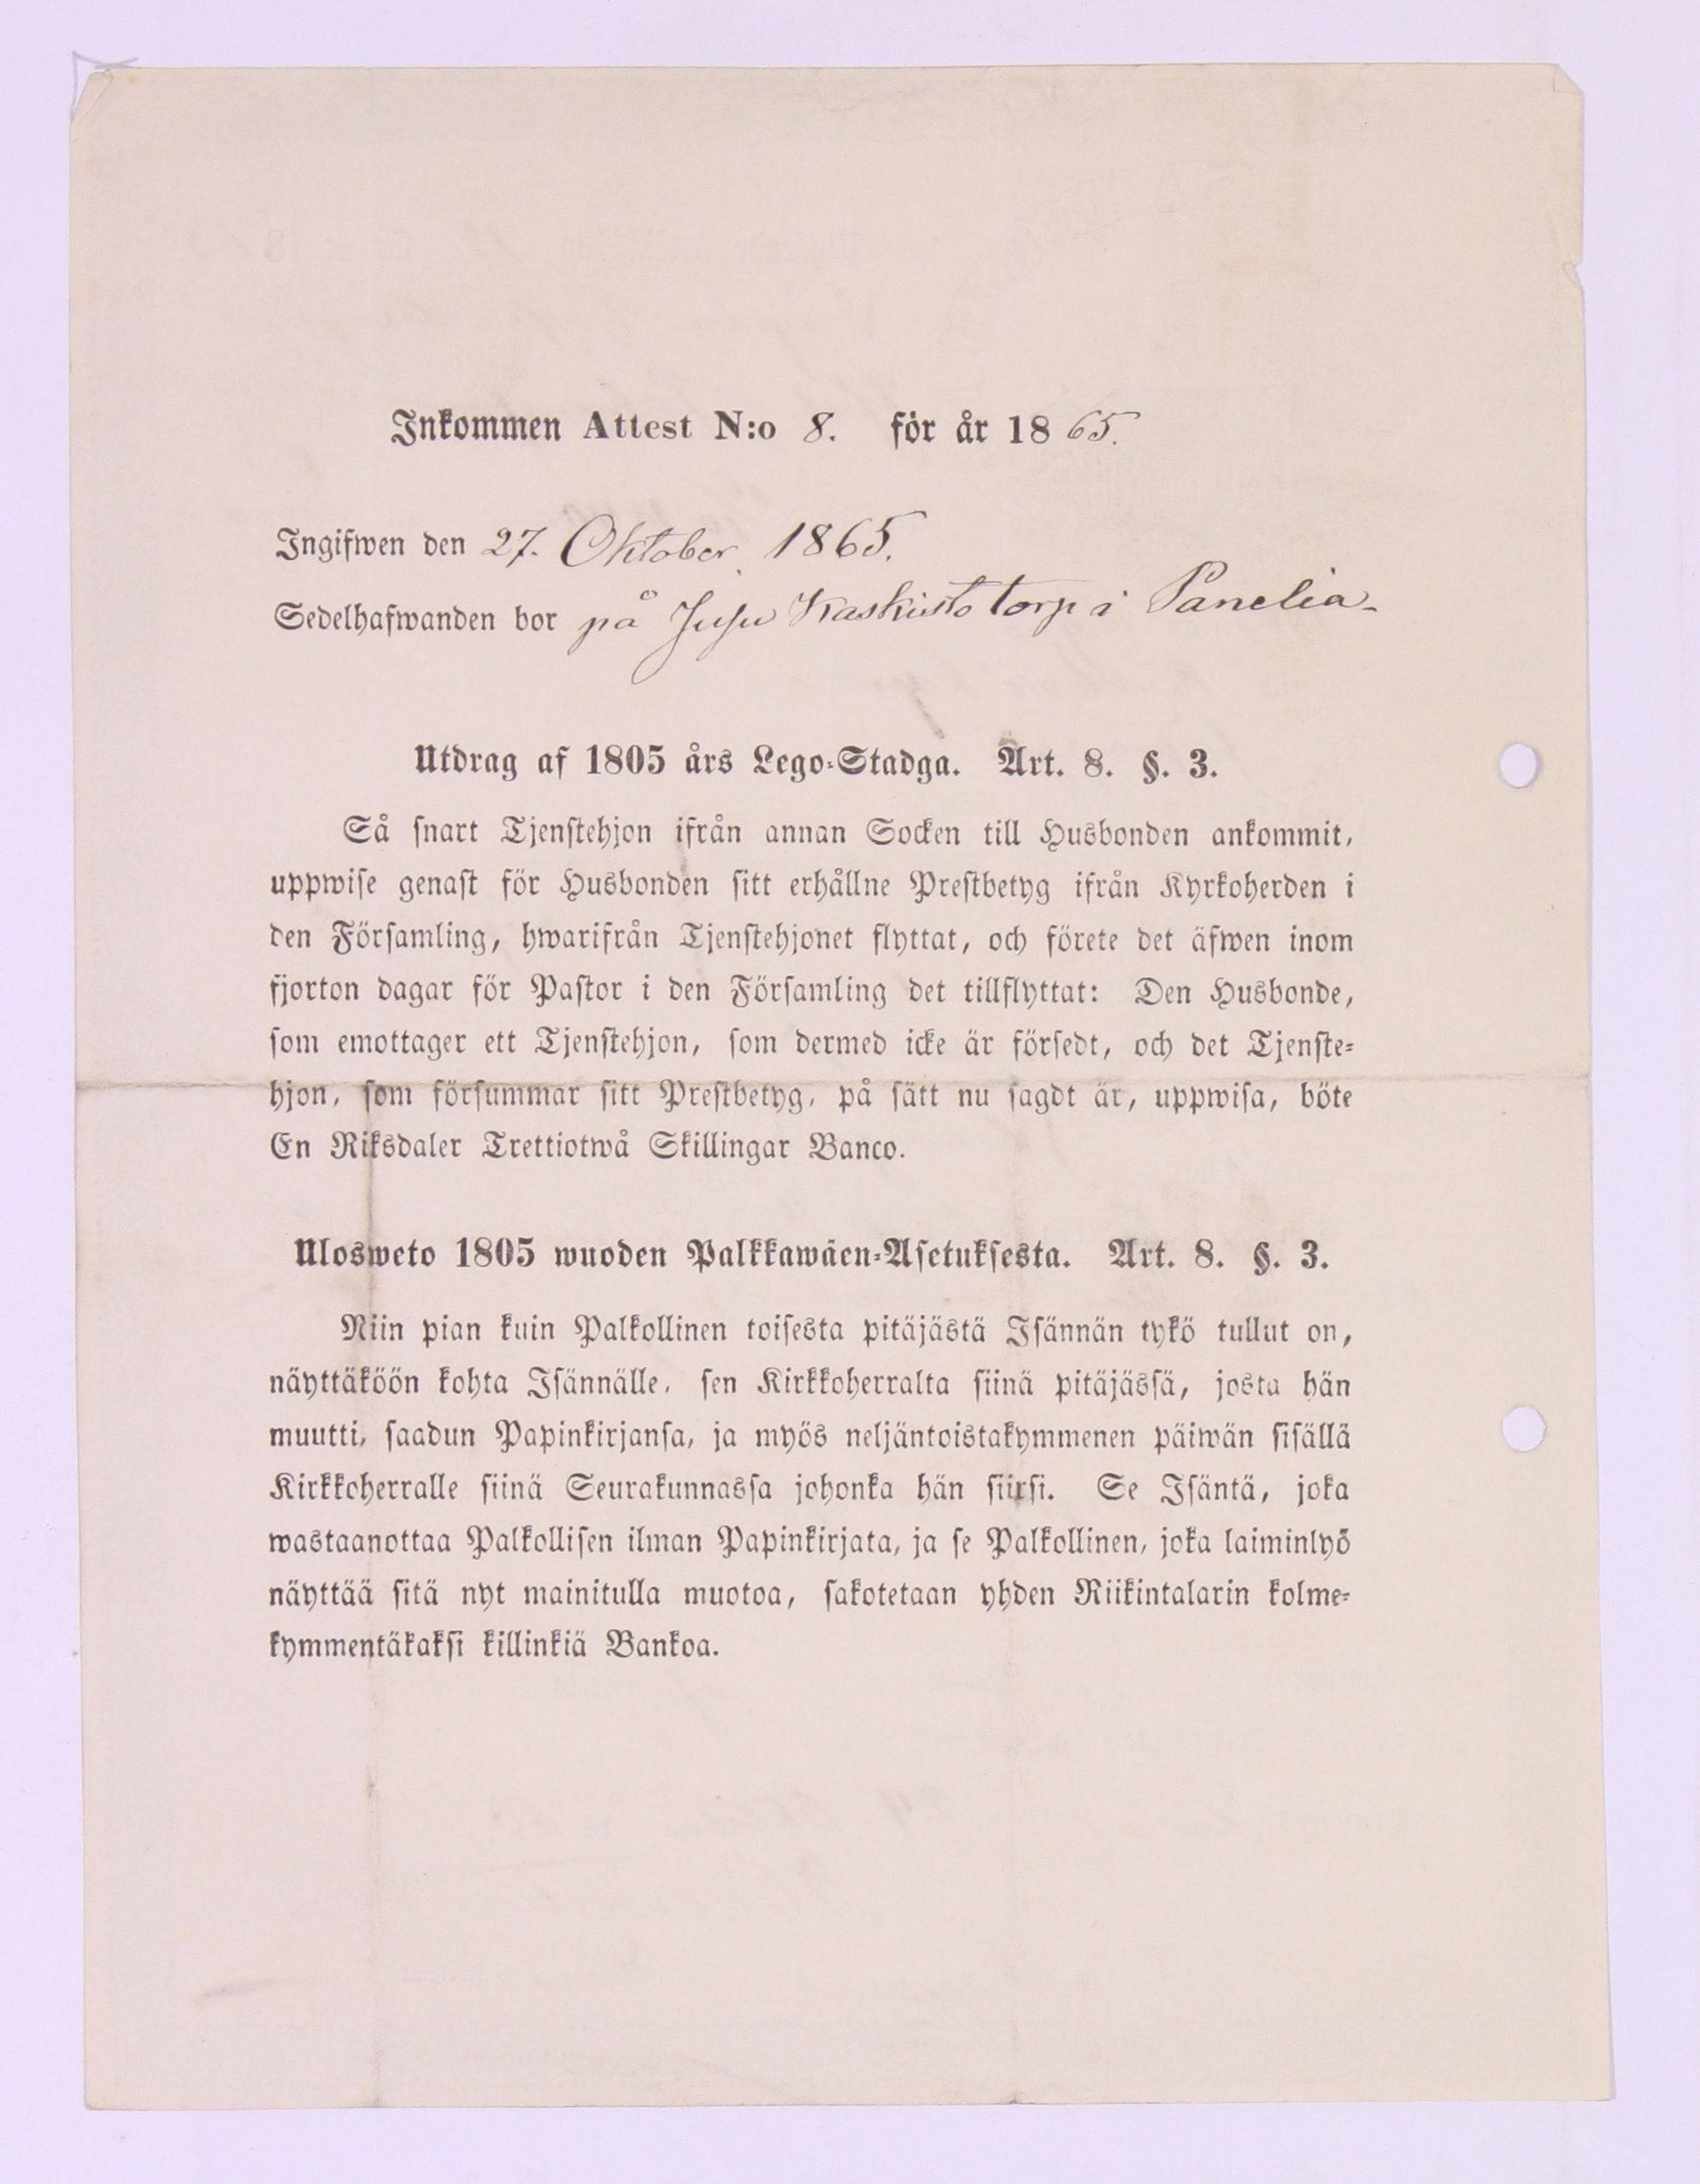 Inkommen Attest N:o 8. för år 1865.
Ingifwen den 27. Oktober 1865.
Sedelhafwanden bor på Juju Kaskisto torp i Panelia.
Utdrag af 1805 års Lego-Stadga. Art. 8. §. 3.
Så snart Tjenstehjon ifrån annan Socken till Husbonden ankommit,
uppwise genast för Husbonden sitt erhållne Prestbetyg ifrån Kyrkoherden i
den Församling, hwarifrån Tjenstehjonet flyttat, och förete det äfwen inom
fjorton dagar för Pastor i den Församling det tillflyttat: Den Husbonde,
som emottager ett Tjenstehjon, som dermed icke är försedt, och det Tjenste-
hjon, som försummar sitt Prestbetyg, på sätt nu sagdt är, uppwisa, böte
En Riksdaler Trettiotwå Skillingar Banco.
Ulosweto 1805 wuoden Palkkawäen-Asetuksesta. Art. 8. §. 3.
Niin pian kuin Palkollinen toisesta pitäjästä Isännän tykö tullut on,
näyttäköön kohta Isännälle, sen Kirkkoherralta siinä pitäjässä, josta hän
muutti, saadun Papinkirjansa, ja myös neljäntoistakymmenen päiwän sisällä
Kirkkoherralle siinä Seurakunnassa johonka hän siirsi. Se Isäntä, joka
wastaanottaa Palkollisen ilman Papinkirjata, ja se Palkollinen, joka laiminlyö
näyttää sitä nyt mainitulla muotoa, sakotetaan yhden Riikintalarin kolme-
kymmentäkaksi killinkiä Bankoa.